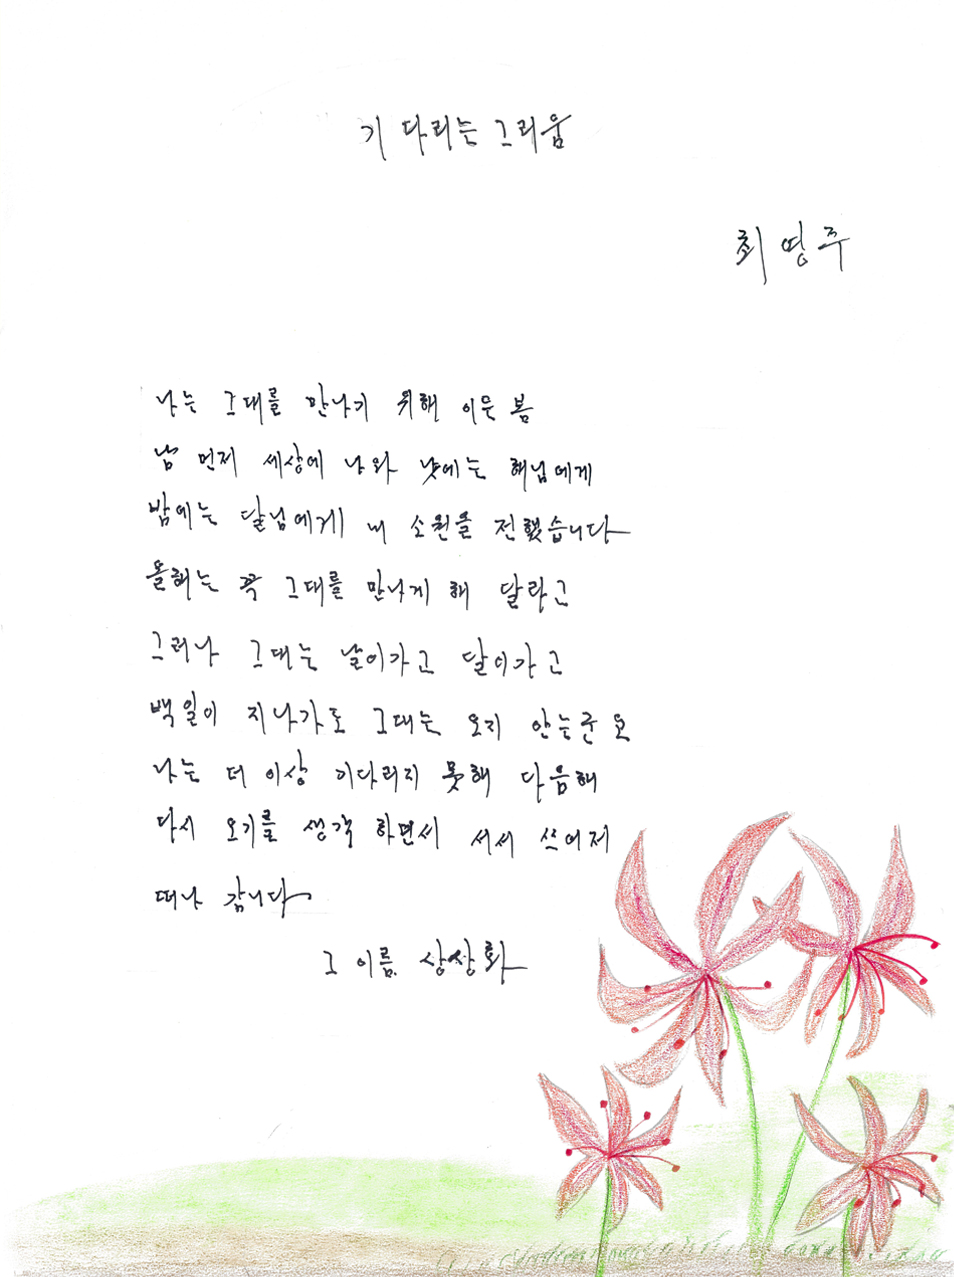 기 다리는 그리움
최영주
나는 그대를 만나기 위해 이른 봄
남 먼저 세상에 나와 낮에는 해님에게
밤에는 달님에게 내 소원을 전했습니다
올해는 꼭 그대를 만나게 해 달라고
그러나 그대는 날이가고 달이가고
백일이 지나가도 그대는 오지 안는군요
나는 더 이상 기다리지 못해 다음해
다시 오기를 생각 하면서 서서 쓰어저
떠나 갑니다
그 이름 상상화